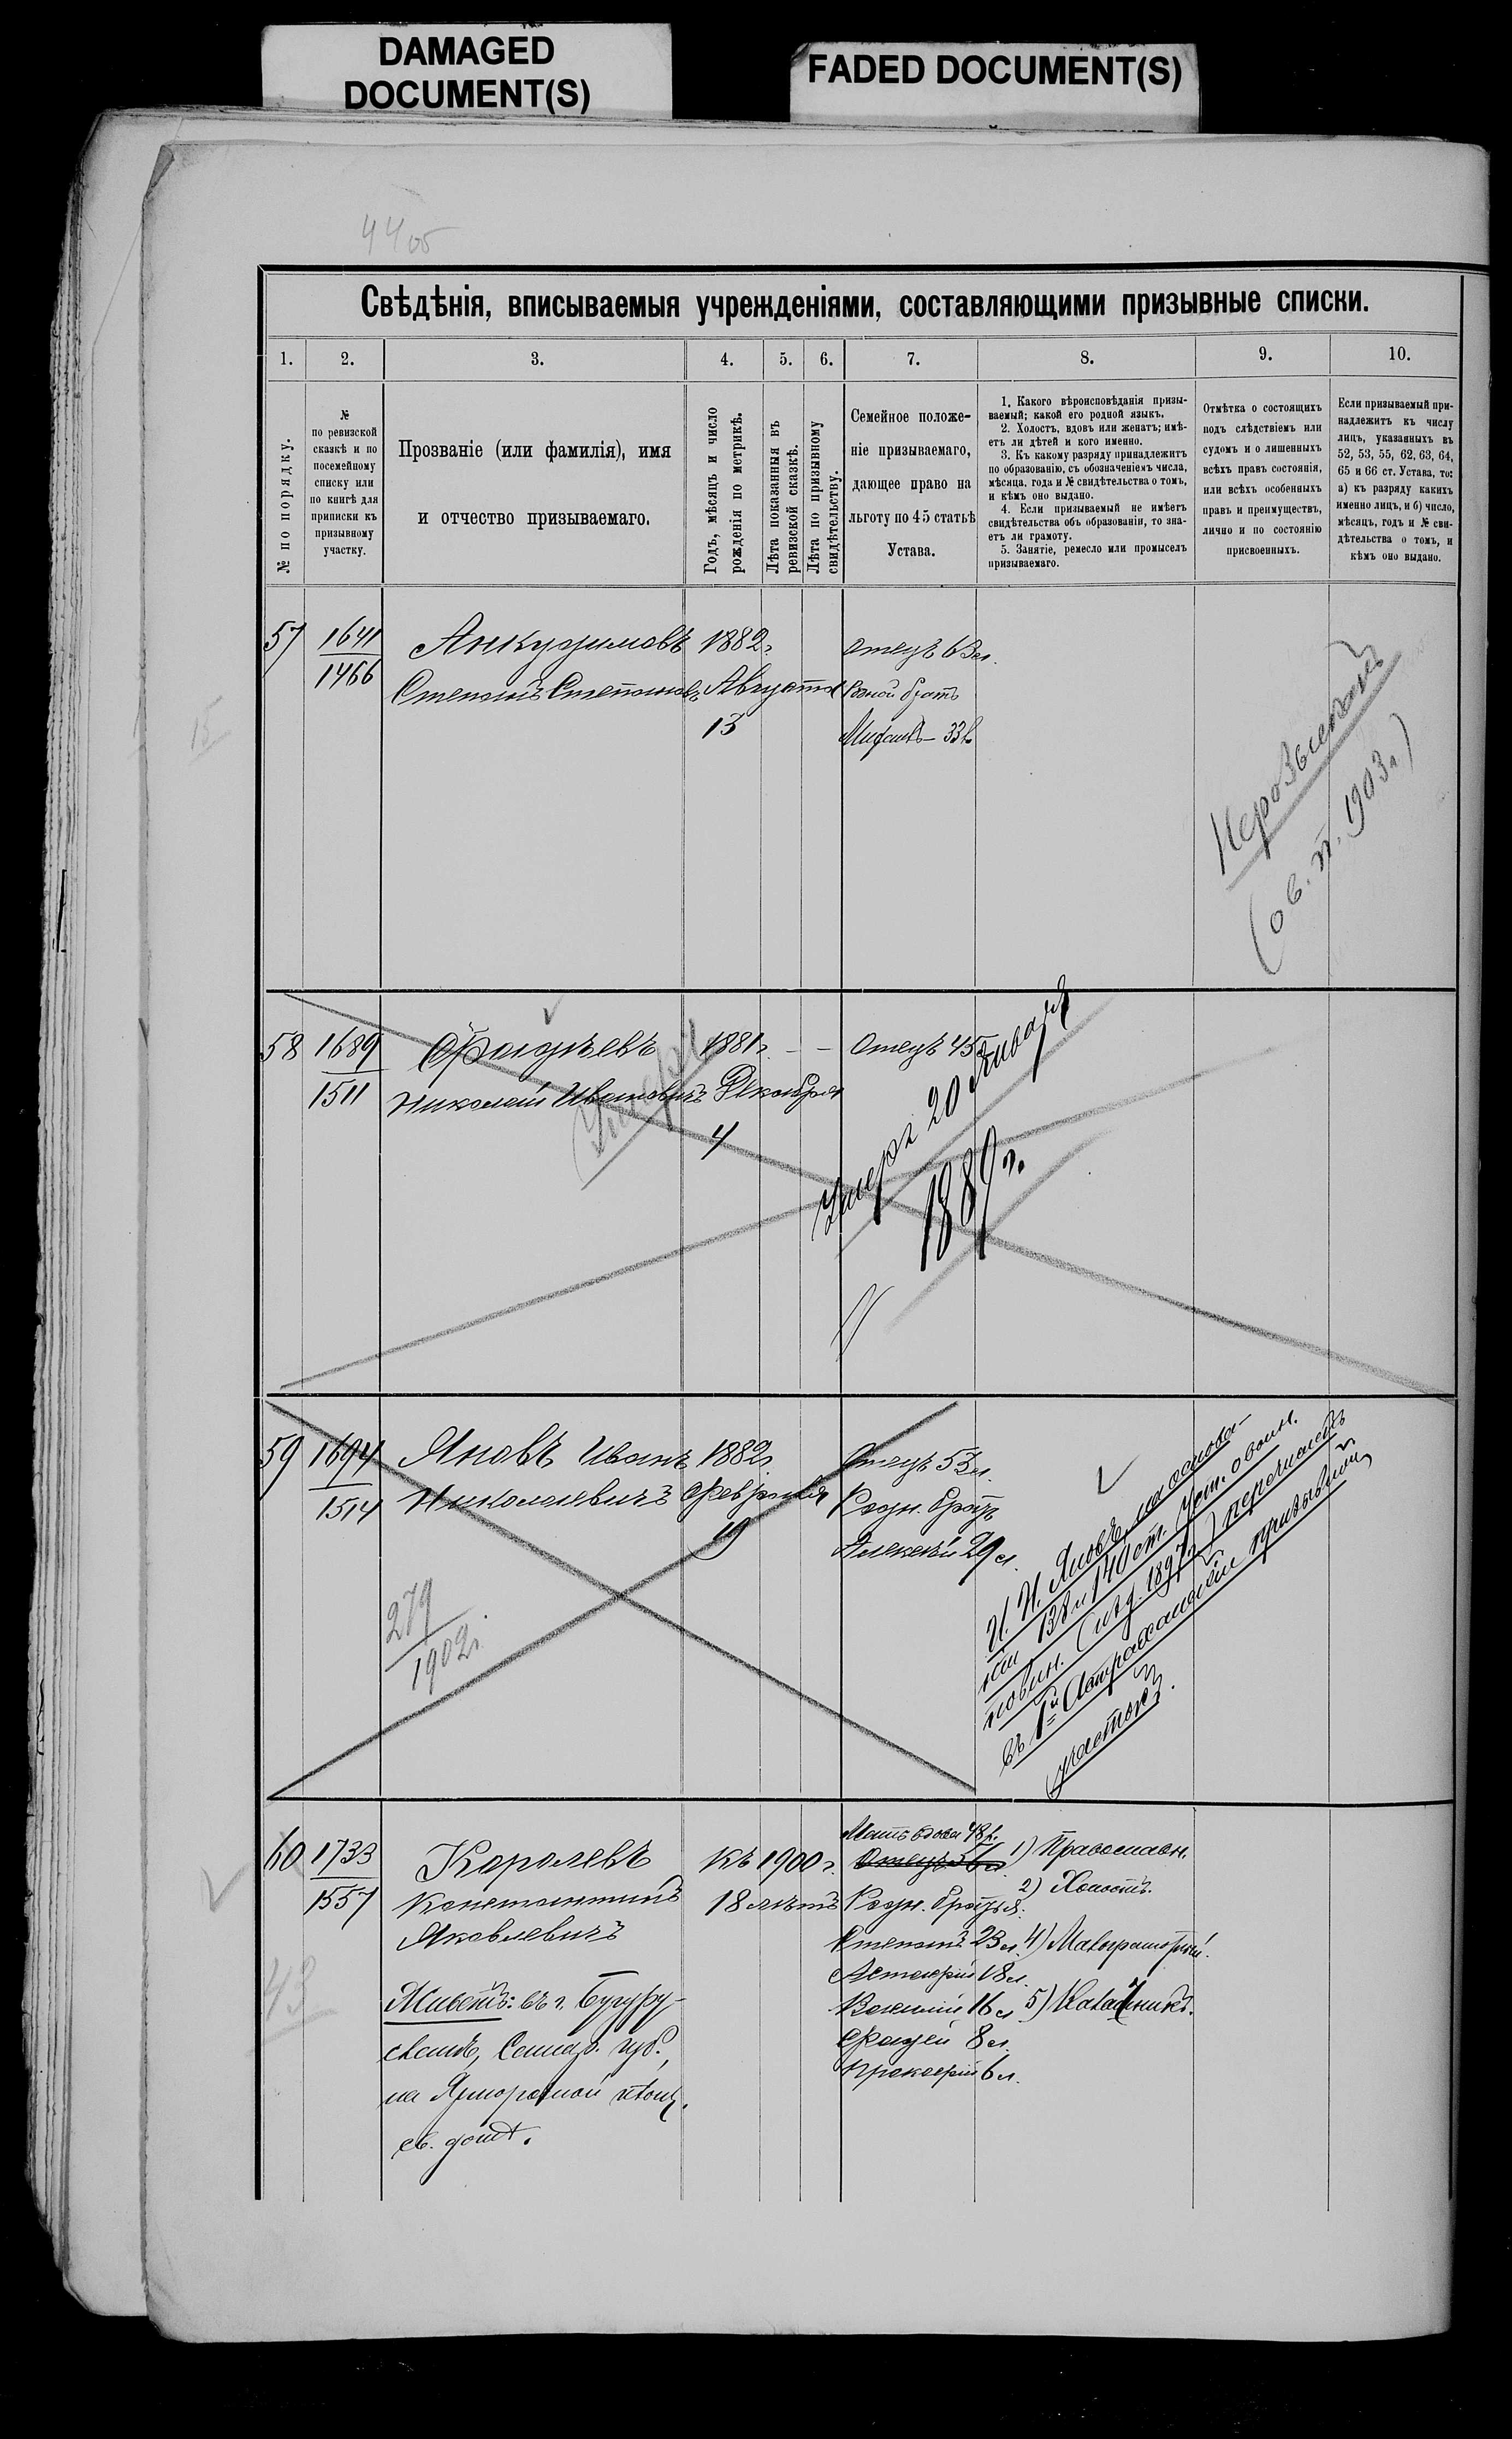 DAMAGED
DOCUMENT(S)
FADED DOCUMENT(S)
44об
Свѣдѣнія, вписываемыя учрежденіями, составляющими призывные списки.
1. 2. 3. 4. 5. 6. 7. 8. 9. 10.
№ по порядку.
№
по ревизской
сказкѣ и по
посемейному
списку или
по книгѣ для
приписки къ
призывному
участку.
Прозваніе (или фамилія), имя
и отчество призываемаго.
Годъ, мѣсяцъ и число
рожденія по метрикѣ.
Лѣта показанныя въ
ревизской сказкѣ.
Лѣта по призывному
свидѣтельству.
Семейное положе-
ніе призываемаго,
дающее право на
льготу по 45 статьѣ
Устава.
1. Какого вѣроисповѣданія призы-
ваемый; какой его родной языкъ.
2. Холостъ, вдовъ или женатъ; имѣ-
етъ ли дѣтей и кого именно.
3. Къ какому разряду принадлежитъ
по образованію, съ обозначеніемъ числа,
мѣсяца, года и № свидѣтельства о томъ,
и кѣмъ оно выдано.
4. Если призываемый не имѣетъ
свидѣтельства объ образованіи, то зна-
етъ ли грамоту.
5. Занятіе, ремесло или промыселъ
призываемаго.
Отмѣтка о состоящихъ
подъ слѣдствіемъ или
судомъ и о лишенныхъ
всѣхъ правъ состоянія,
или всѣхъ особенныхъ
правъ и преимуществъ,
лично и по состоянію
присвоенныхъ.
Если призываемый при-
надлежитъ къ числу
лицъ, указанныхъ въ
52, 53, 55, 62, 63, 64,
65 и 66 ст. Устава, то:
а) къ разряду какихъ
именно лицъ, и б) число,
мѣсяцъ, годъ и № сви-
дѣтельства о томъ, и
кѣмъ оно выдано.
57 1641 Анкудимовъ 1882г отецъ 63л.
1466 Степанъ Степановъ Августа Родной братъ
13 33
15
1903г)
58 1689 Фадѣевъ 1881г. — — Отецъ 45
1511 Николай Ивановичъ Декабря
4
Умеръ
Умеръ 20 Января
1889 г.
59 1694 Яновъ Иванъ 1882г Отецъ 53л.
1514 Николаевичъ Февраля Родн. братъ
19 Алексѣй 29л.
279
1902г.
И. Н. Яновъ, на основа-
ніи 138 и 140 ст. уст. о воин.
повин. (изд. 1897г.) перечисленъ
въ 1й Астраханскій призывной
участокъ.
60 1733 Королевъ къ 1900г. Мать вдова 48л. 1) Православн.
Отецъ 56л
1557 Константинъ 18 лѣтъ Родн. братья: 2) Холостъ.
Яковлевичъ Степанъ 23л. 4) Малограмотный.
18л.
43
Живетъ: въ г. Бугуру- Василій 16л 5) Калачникъ.
сланѣ, Самар. губ., Фадей 8л.
на Ярморочной площ. Прокофій 6л.
св. домъ.